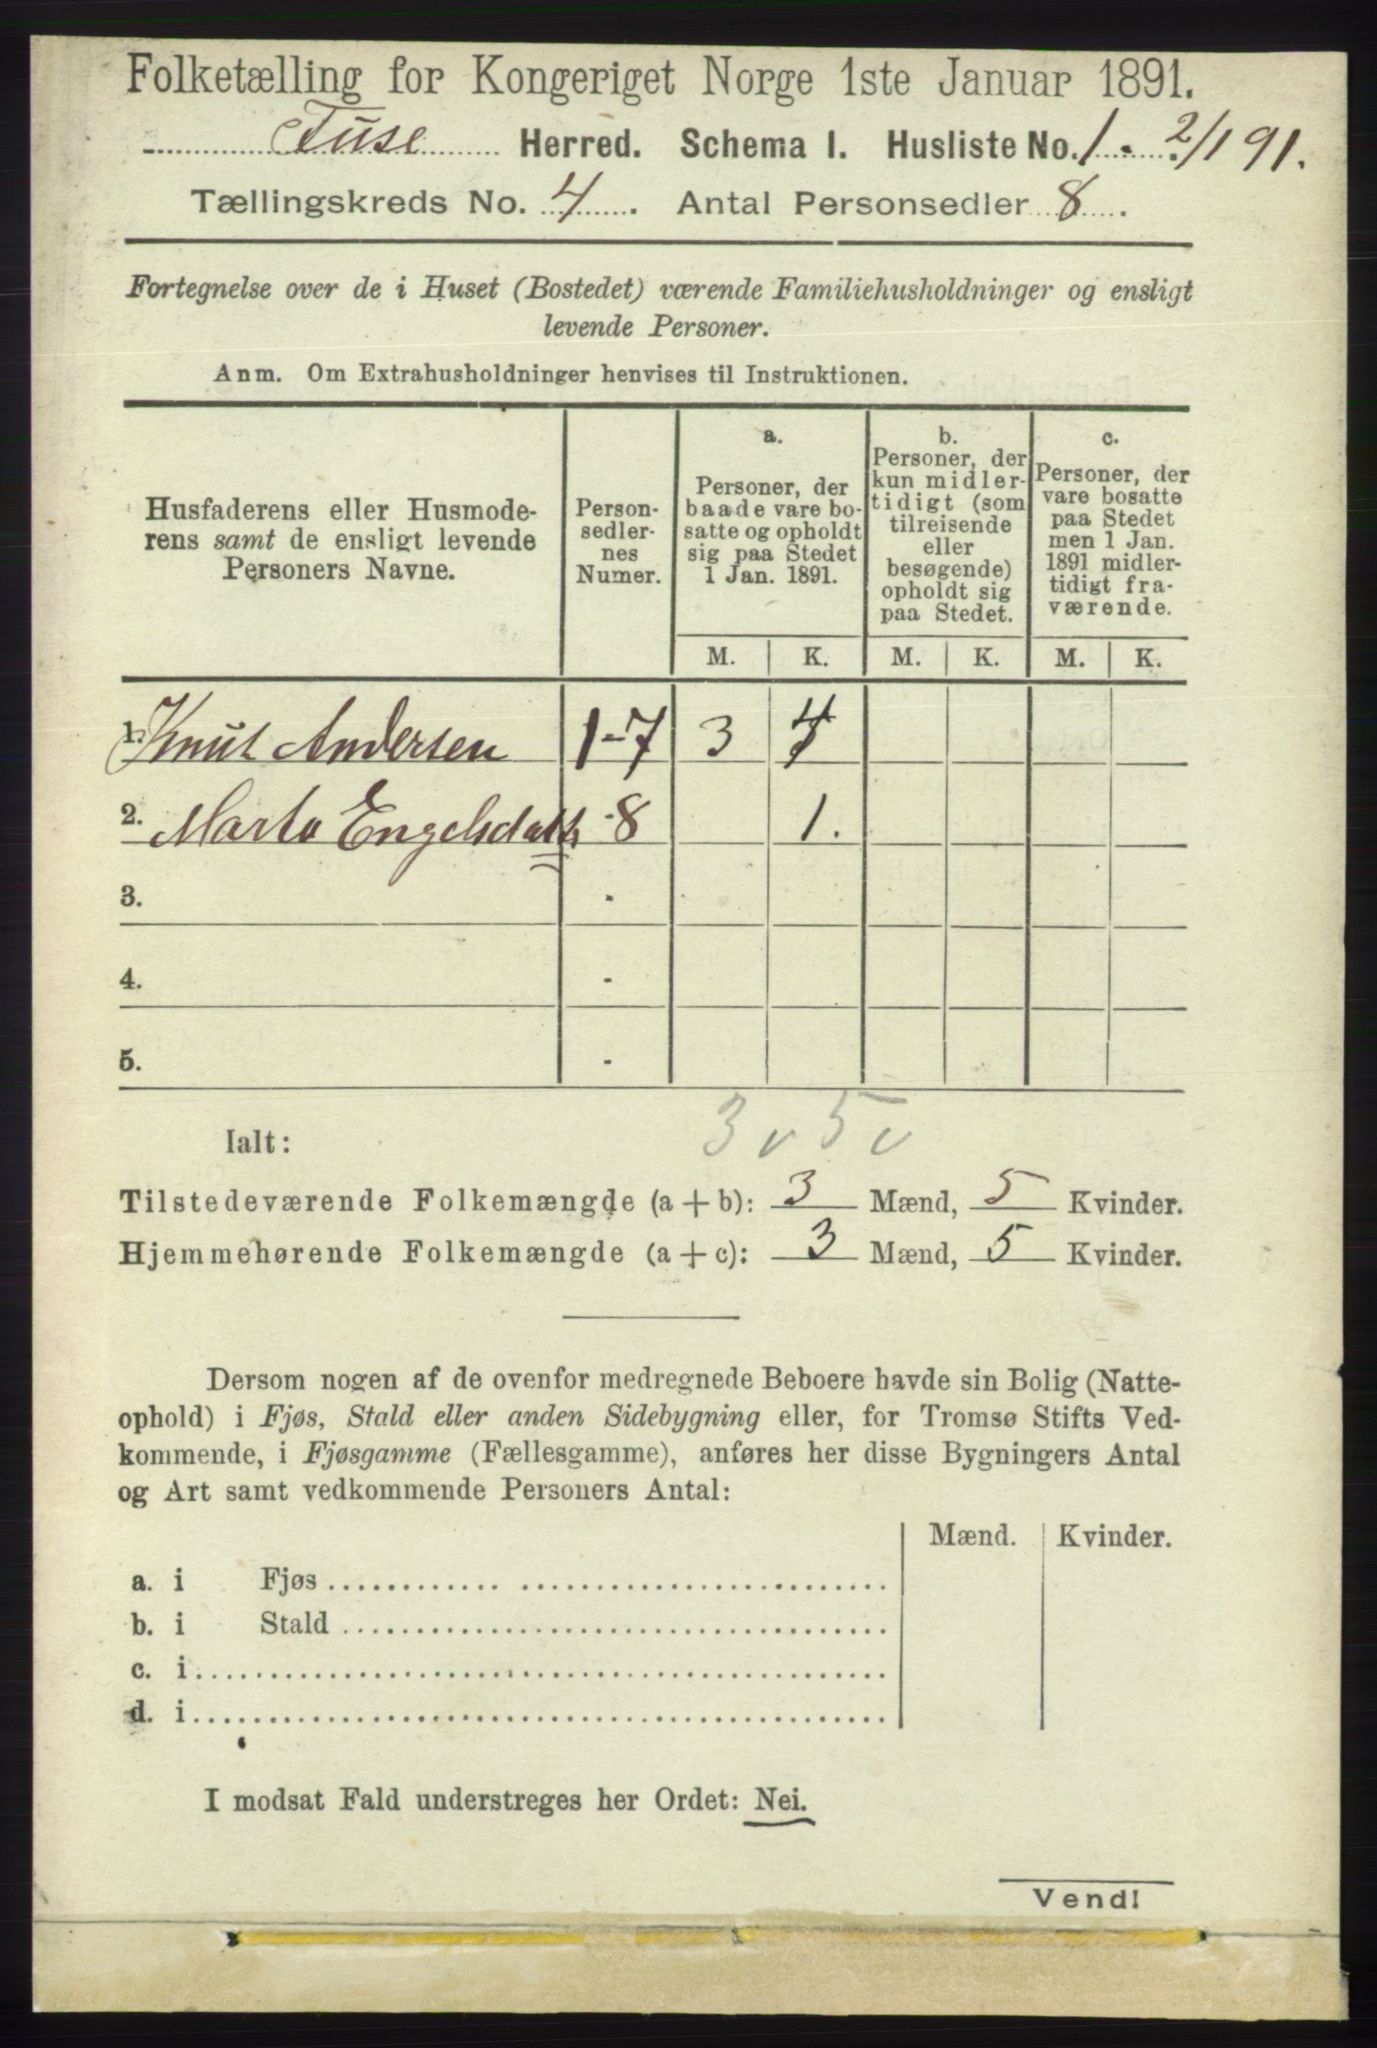 Folketælling for Kongeriget Norge 1ste Januar 1891.
Fuse Herred. Schema I. Husliste No. 1 - 2/1 91.
Tællingskreds No. 4. Antal Personsedler 8.
Fortegnelse over de i Huset (Bostedet) værende Familiehusholdninger og ensligt
levende Personer.
Anm. Om Extrahusholdninger henvises til Instruktionen.
Husfaderens eller Husmode-
rens samt de ensligt levende
Personers Navne.
Person-
sedler-
nes
Numer.
a.
Personer, der
baade vare bo-
satte og opholdt
sig paa Stedet
1 Jan. 1891.
b.
Personer, der
kun midler-
tidigt (som
tilreisende
eller
besøgende)
opholdt sig
paa Stedet.
c.
Personer, der
vare bosatte
paa Stedet
men 1 Jan.
1891 midler-
tidigt fra-
værende.
M. K. M. K. M. K.
1. Knut Andersen 1-7 3 4
2. Marta Engelsdatt. - 8 1.
3. -
4. -
5. -
3 v 5 v
Ialt:
Tilstedeværende Folkemængde (a + b): 3 Mænd, 5 Kvinder.
Hjemmehørende Folkemængde (a + c): 3 Mænd, 5 Kvinder.
Dersom nogen af de ovenfor medregnede Beboere havde sin Bolig (Natte-
ophold) i Fjøs, Stald eller anden Sidebygning eller, for Tromsø Stifts Ved-
kommende, i Fjøsgamme (Fællesgamme), anføres her disse Bygningers Antal
og Art samt vedkommende Personers Antal:
Mænd. Kvinder.
a. i Fjøs
b. i Stald
c. i
d. i
I modsat Fald understreges her Ordet: Nei.
Vend!